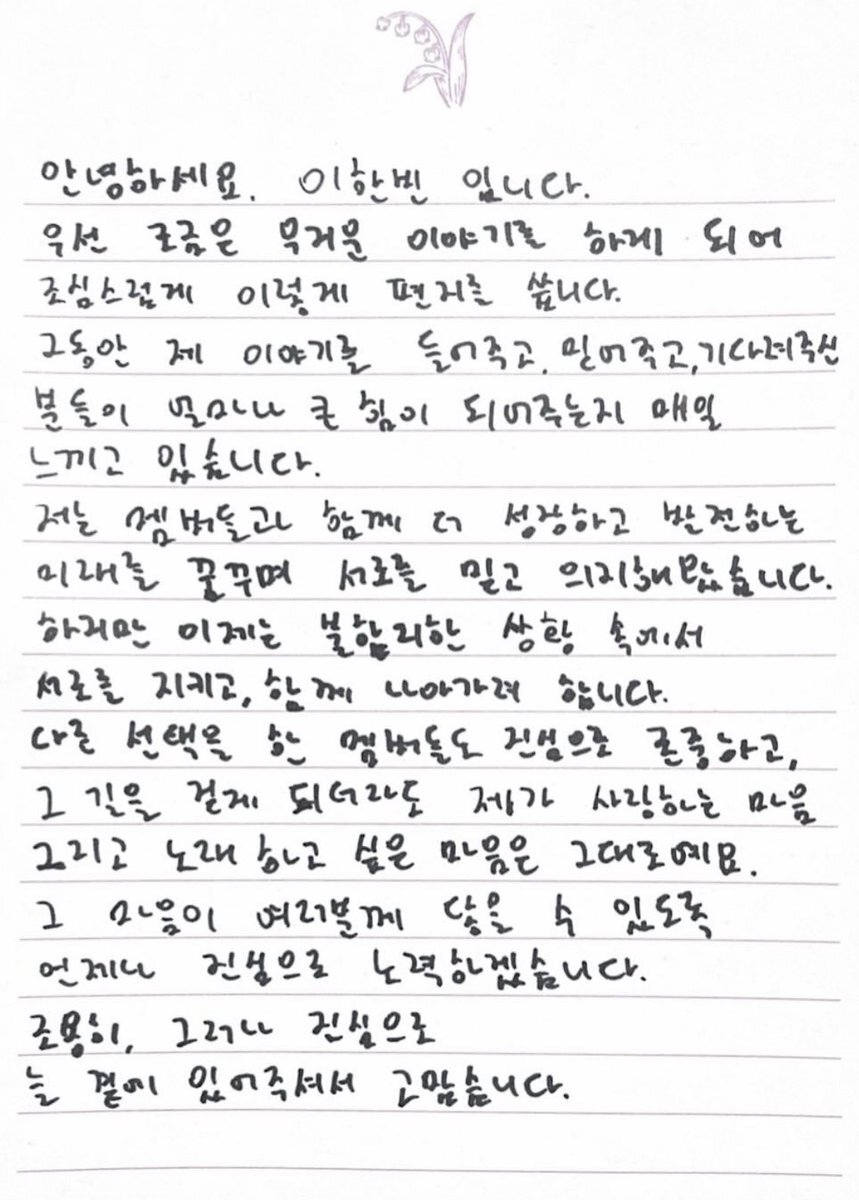 안녕하세요. 이한빈 입니다.
우선 조금은 무거운 이야기를 하게 되어
조심스럽게 이렇게 편지를 씁니다.
그동안 제 이야기를 들어주고, 믿어주고, 기다려주신
분들이 얼마나 큰 힘이 되어주는지 매일
느끼고 있습니다.
저는 멤버들과 함께 더 성장하고 발전하는
미래를 꿈꾸며 서로를 믿고 의지해왔습니다.
하지만 이제는 불합리한 상황 속에서
서로를 지키고, 함께 나아가려 합니다.
다른 선택을 한 멤버들도 진심으로 존중하고,
그 길을 걷게 되더라도 제가 사랑하는 마음
그리고 노래하고 싶은 마음은 그대로예요.
그 마음이 여러분께 닿을 수 있도록
언제나 진심으로 노력하겠습니다.
조용히, 그러나 진심으로
늘 곁에 있어주셔서 고맙습니다.